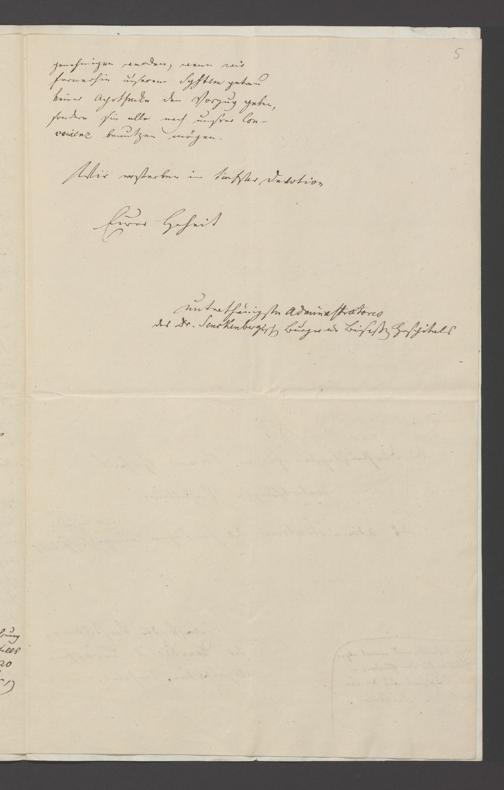 5
genehmigen werden, wenn wir
fernerhin unserem System getreu
keiner Apotheke den Vorzug geben,
sondern sie alle nach unsrer Con-
venienz benutzen mögen.
Wir ersterben in tiefster Devotion
Eurer Hoheit
unterthänigste Administratores
des Dr. Senckenbergisch Bürger u Beisass Hospitals